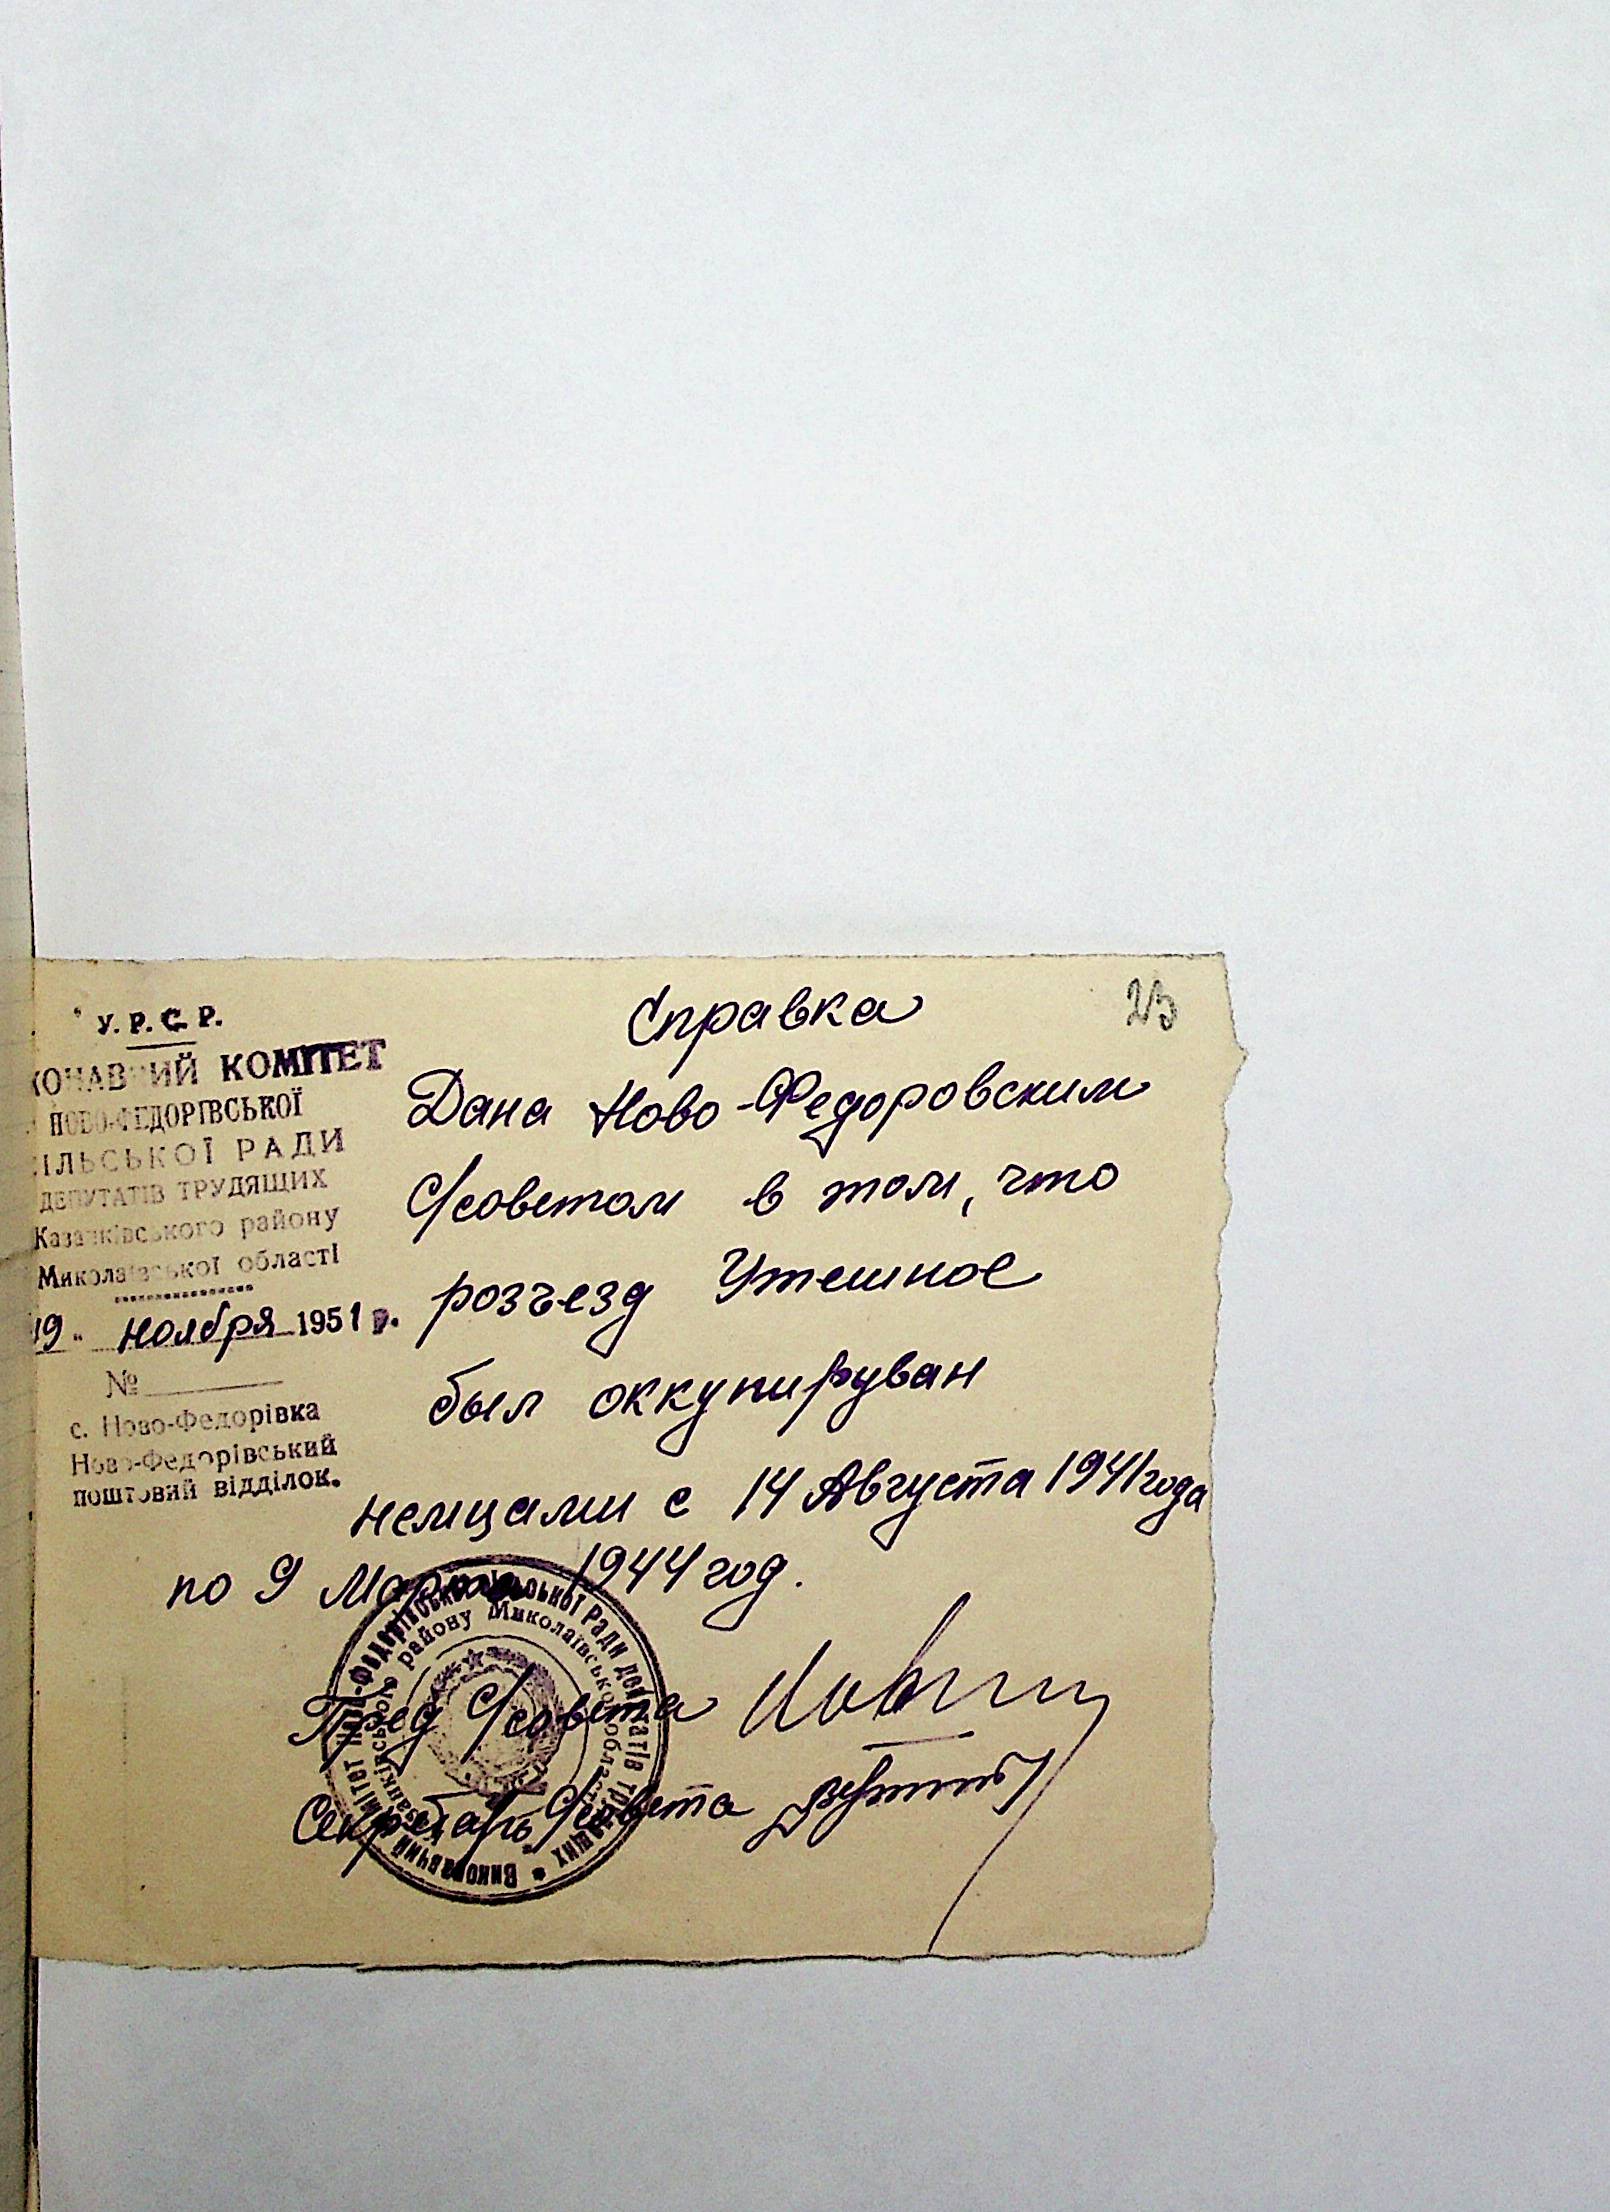 У. Р. С. Р.
КОНАВЧИЙ КОМІТЕТ
НОВО-ФЕДОРІВСЬКОЇ
СІЛЬСЬКОЇ РАДИ
ДЕПУТАТІВ ТРУДЯЩИХ
Казанківського району
Миколаївської області
19" ноября 1951 р.
№
с. Ново-Федорівка
Ново-Федорівський
поштовий відділок.
23
Справка
Дана Ново-Федоровским
С/советом в том, что
розъезд Утешное
был оккупируван
немцами с 14 Августа 1941 года
по 9 Марта 1944 год.
Пред С/совета
Секретарь С/совета
Виконавчий комітет Ново-Федорівської сільської Ради депутатів трудящих
Казанківського району Миколаївської області